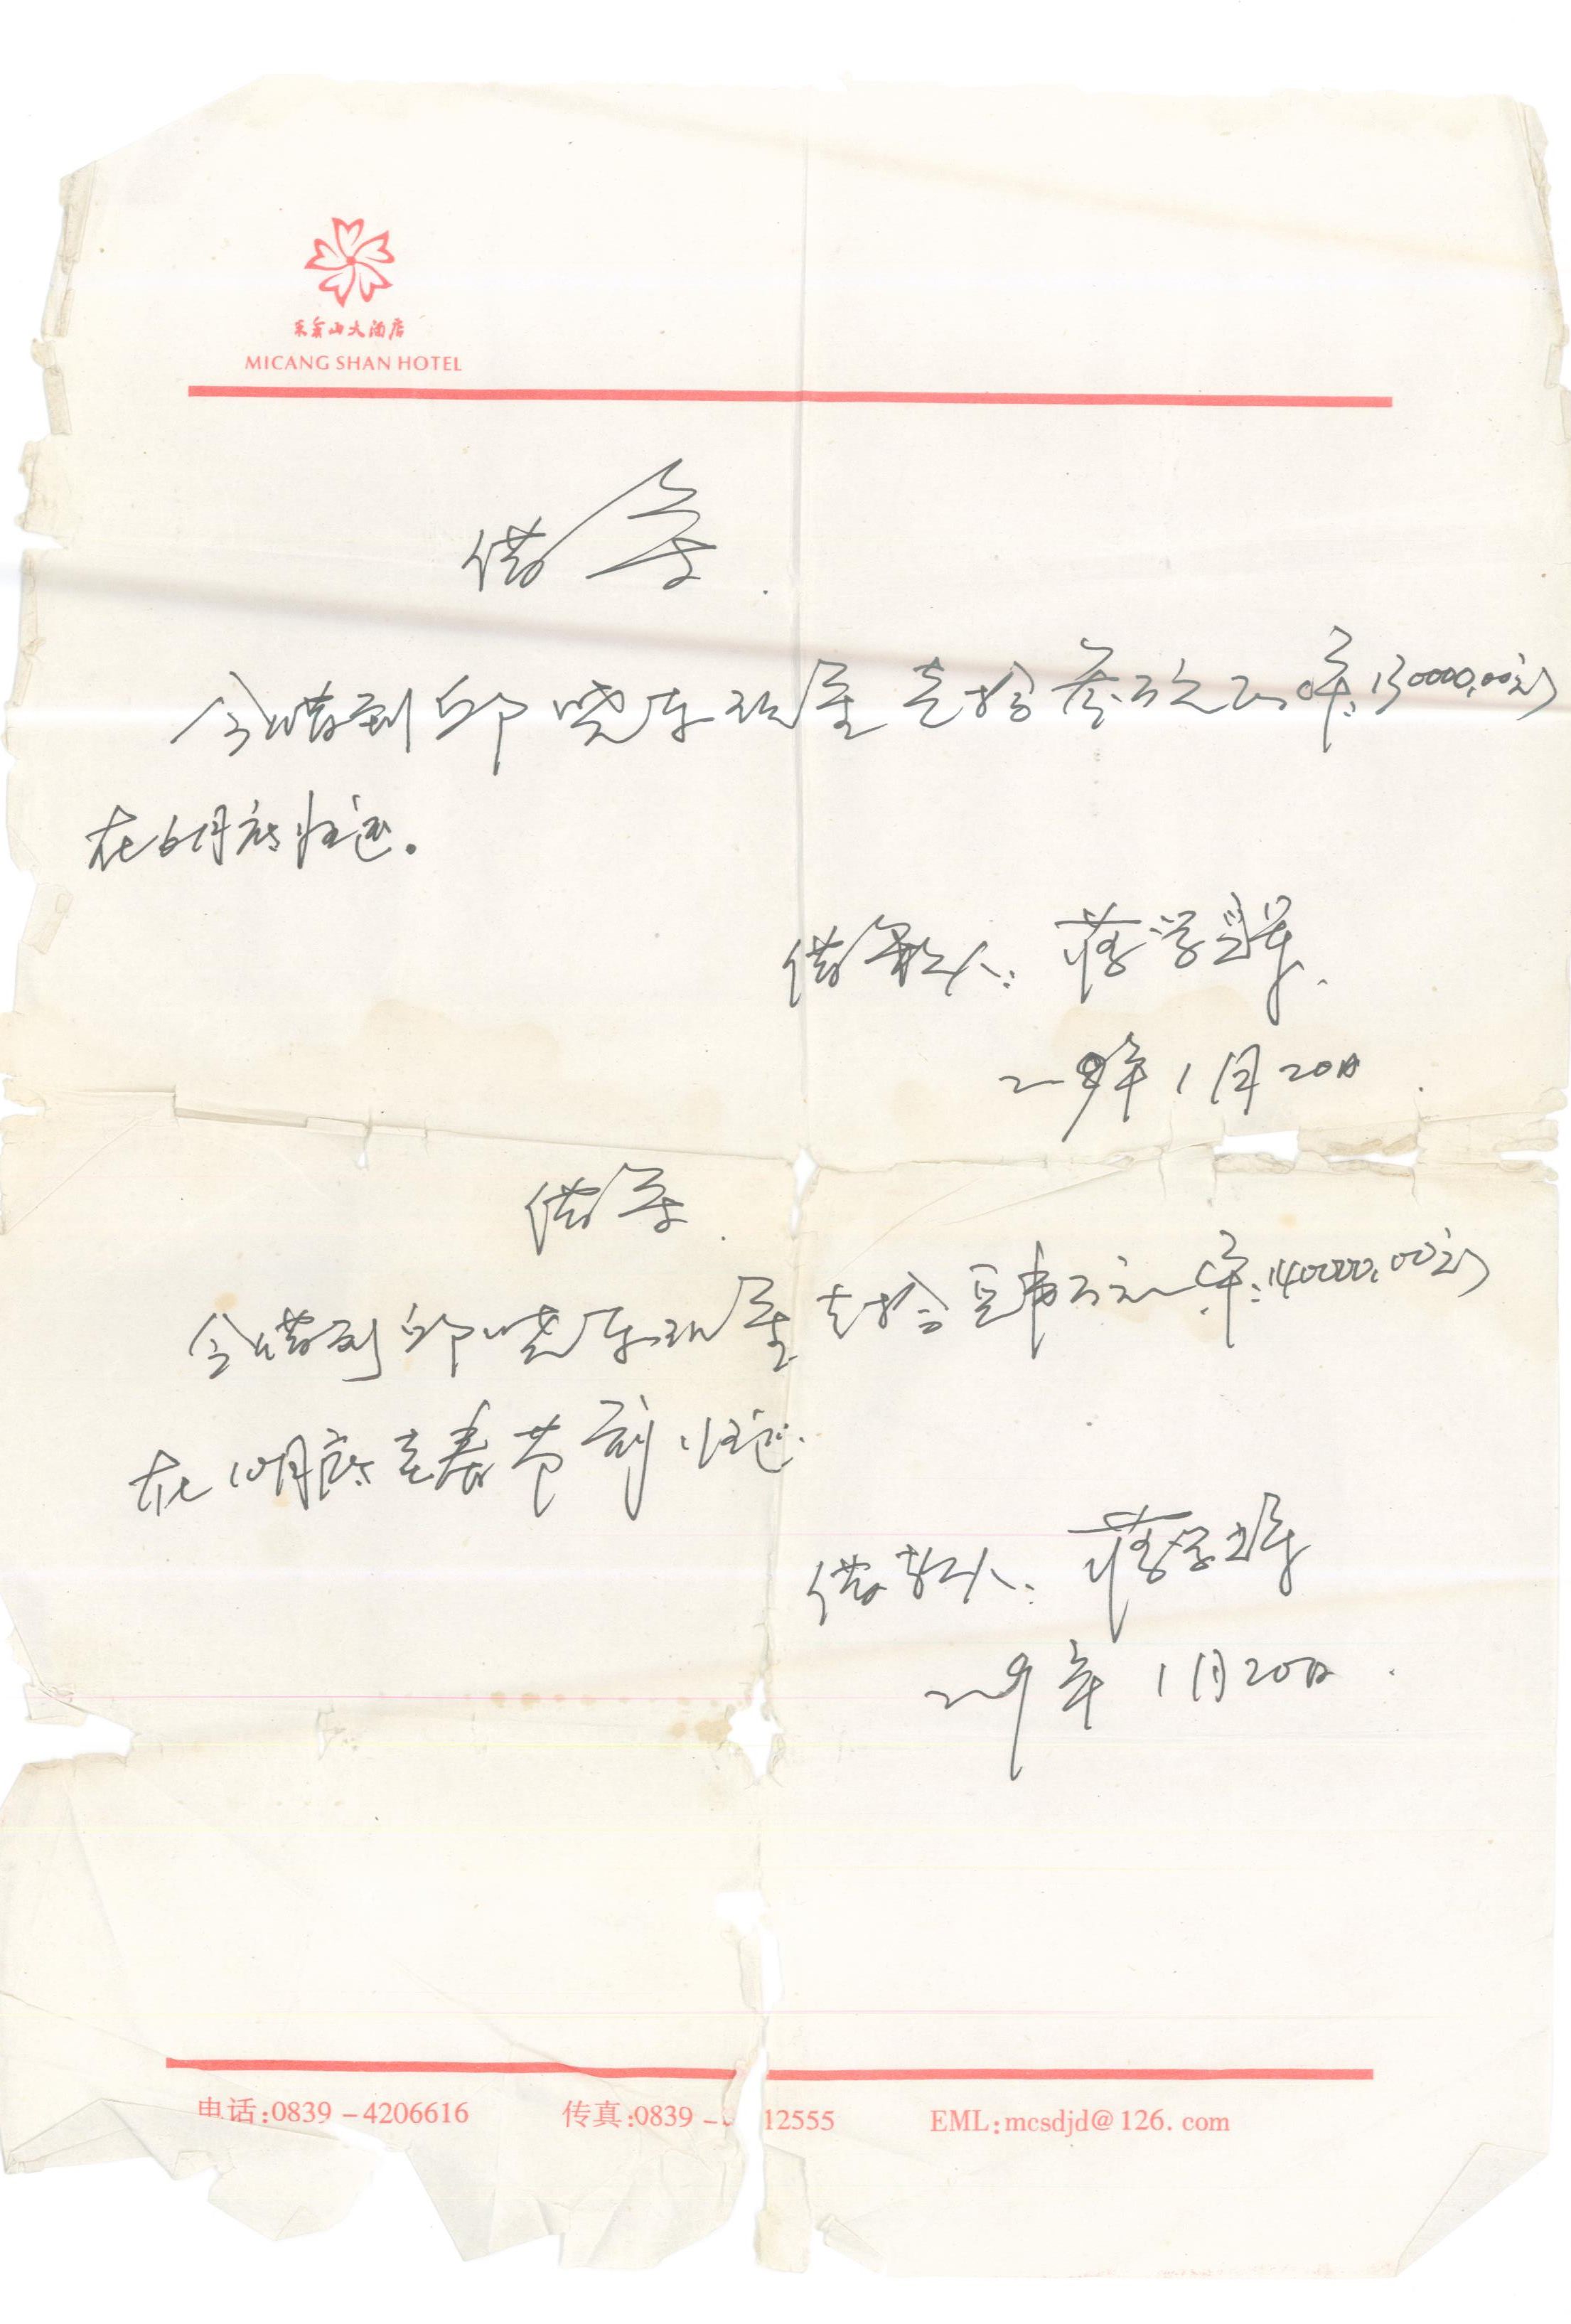 米仓山大酒店
MICANG SHAN HOTEL
借条
今借到邱晓东现金壹拾叁万元正 (¥:130000.00元)
在6月底归还。
借款人: 蒋学
年1月20日
借条
今借到邱晓东现金壹拾肆万元 (¥:140000.00元)
在10月底至春节前归还.
借款人: 蒋学
二〇〇9年1月20日
电话:0839-4206616 传真:0839- 12555 EML:mcsdjd@126.com